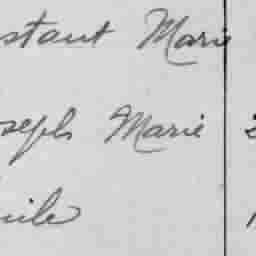 stant Marie
oseph Marie
mile